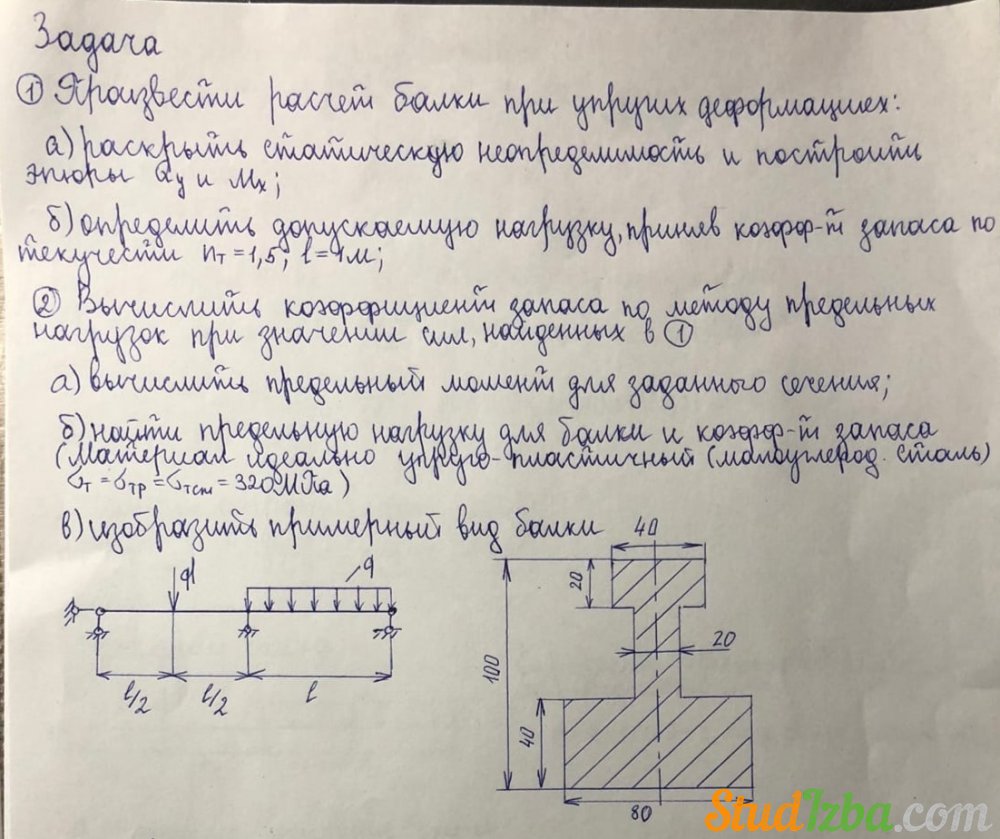 Задача
① Произвести расчет балки при упругих деформациях:
а) раскрыть статическую неопределимость и построить
эпюры Qy и Mx;
б) определить допускаемую нагрузку, приняв коэфф-т запаса по
текучести nт = 1,5; l = 1м;
② Вычислить коэффициент запаса по методу предельных
нагрузок при значении сил, найденных в ①
а) вычислить предельный момент для заданного сечения;
б) найти предельную нагрузку для балки и коэфф-т запаса
(Материал идеально упруго-пластичный (малоуглерод. сталь)
σт = σтр = σтсж = 320МПа)
в) изобразить примерный вид балки
40
ql
q
20
20
100
l/2
l/2
l
40
80
StudIzba.com